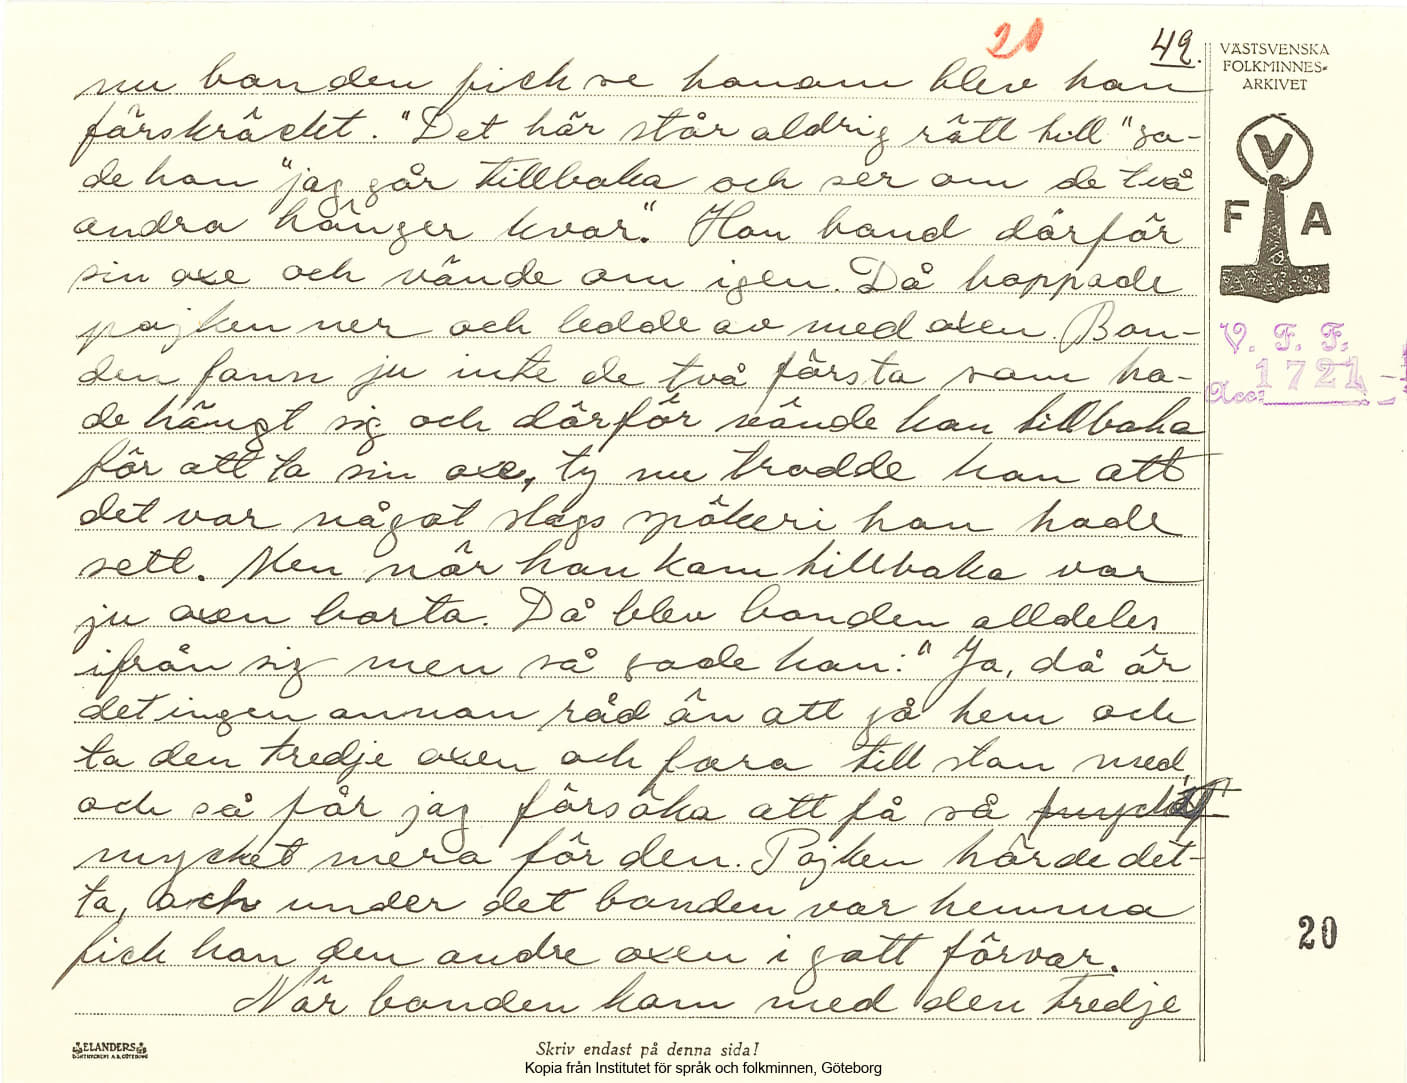 20
49.
VÄSTSVENSKA
FOLKMINNES-
ARKIVET
V
F A
V. F. F.
Acc: 1721
nu bonden fick se honom blev han
förskräckt. "Det här står aldrig rätt till" sa-
de han "jag går tillbaka och ser om de två
andra hänger kvar." Han band därför
sin oxe och vände om igen. Då hoppade
pojken ner och ledde av med oxen. Bon-
den fann ju inte de två första som ha-
de hängt sig och därför vände han tillbaka
för att ta sin oxe, ty nu trodde han att
det var något slags spökeri han hade
sett. Men när han kom tillbaka var
ju oxen borta. Då blev bonden alldeles
ifrån sig men så sade han: "Ja, då är
det ingen annan råd än att gå hem och
ta den tredje oxen och fara till stan med,
och så får jag försöka att få så
mycket mera för den. Pojken hörde det-
ta, och under det bonden var hemma
fick han den andre oxen i gott förvar.
När bonden kom med den tredje
20
ELANDERS
BOKTRYCKERI A.B. GÖTEBORG
Skriv endast på denna sida!
Kopia från Institutet för språk och folkminnen, Göteborg